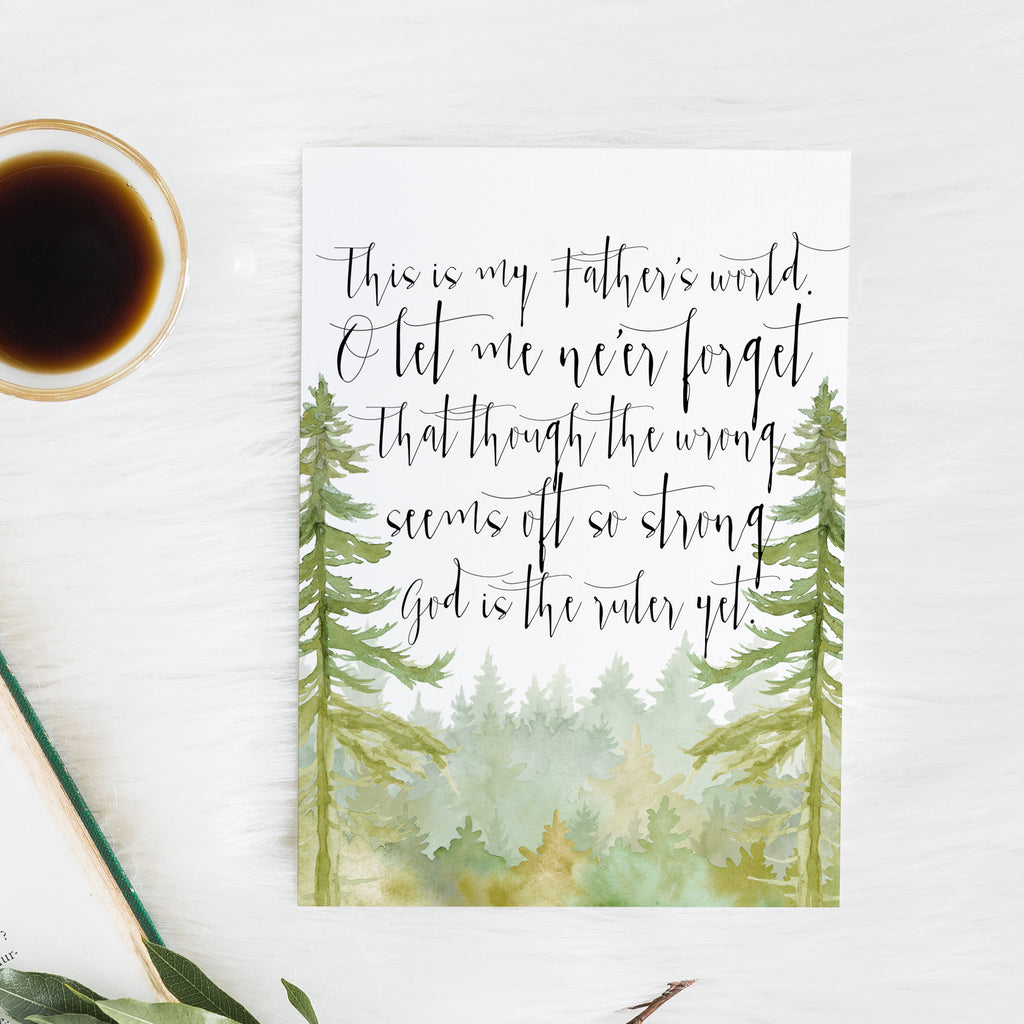 This is my Father's world.
O let me ne'er forget
That though the wrong
seems oft so strong
God is the ruler yet.
?
ur-